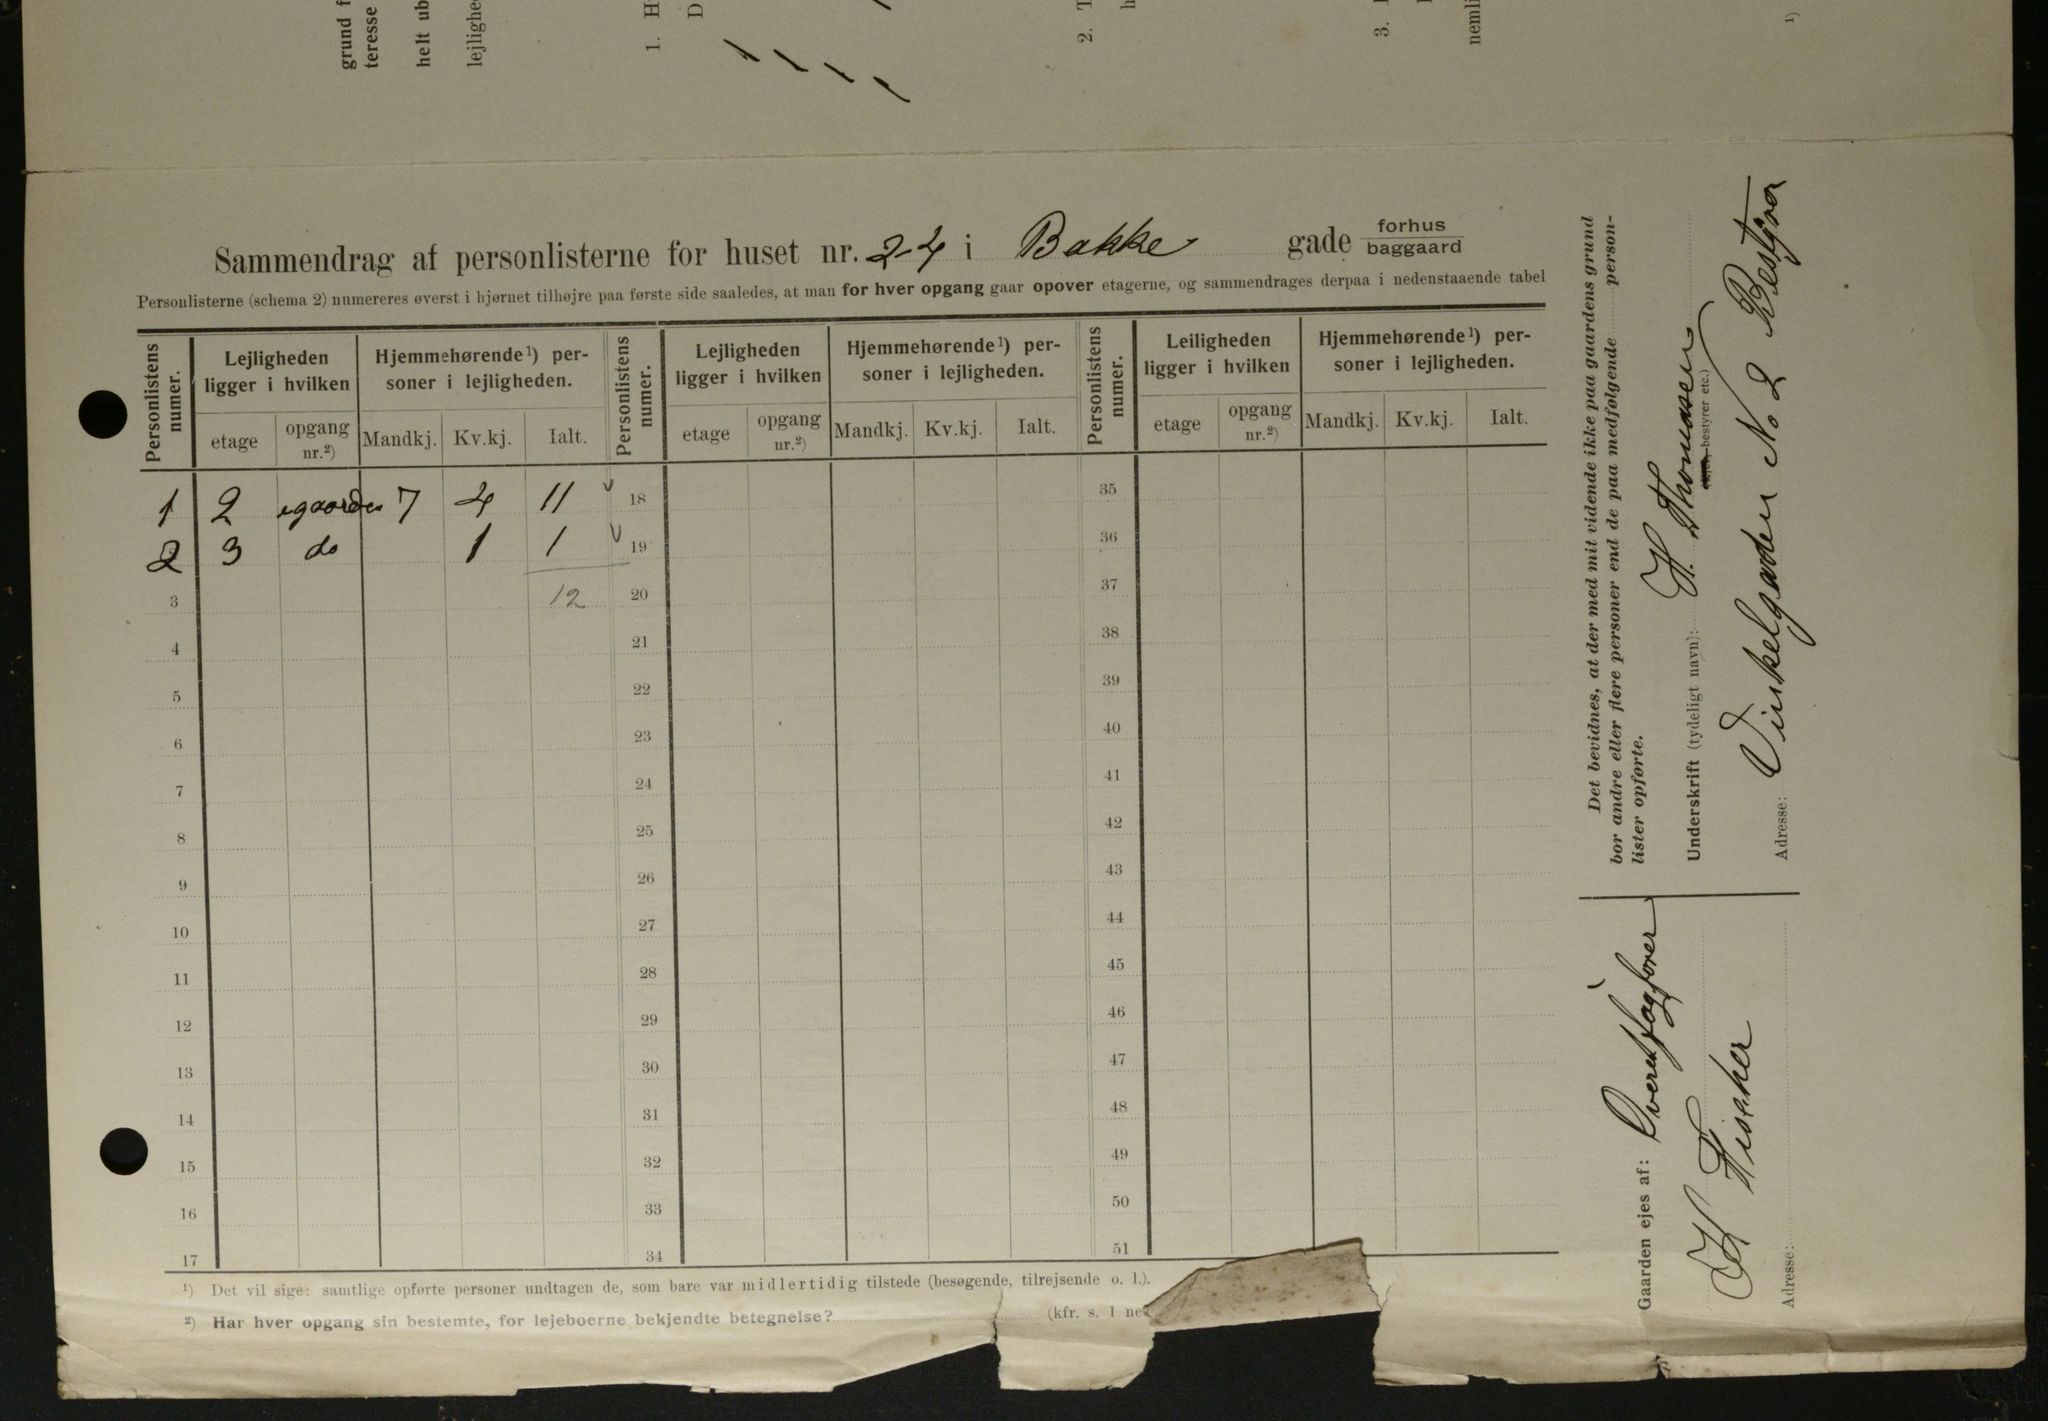 grund f
teresse
helt ub
lejlighe
1. H
D
2. T
h
3.
nemli
1)
Sammendrag af personlisterne for huset nr. 2-4 i Bakke gade forhus
baggaard
Personlisterne (schema 2) numereres øverst i hjørnet tilhøjre paa første side saaledes, at man for hver opgang gaar opover etagerne, og sammendrages derpaa i nedenstaaende tabel
Personlistens numer. Lejligheden ligger i hvilken Hjemmehørende¹) personer i lejligheden. Personlistens numer. Lejligheden ligger i hvilken Hjemmehørende¹) personer i lejligheden. Personlistens numer. Leiligheden ligger i hvilken Hjemmehørende¹) personer i lejligheden.
etage opgang nr.²) Mandkj. Kv.kj. Ialt. etage opgang nr.²) Mandkj. Kv.kj. Ialt. etage opgang nr.²) Mandkj. Kv.kj. Ialt.
1 2 7 4 11 18 35
2 3 do 1 1 19 36
3 12 20 37
4 21 38
5 22 39
6 23 40
7 24 41
8 25 42
9 26 43
10 27 44
11 28 45
12 29 46
13 30 47
14 31 48
15 32 49
16 33 50
17 34 51
¹) Det vil sige: samtlige opførte personer undtagen de, som bare var midlertidig tilstede (besøgende, tilrejsende o. l.).
²) Har hver opgang sin bestemte, for lejeboerne bekjendte betegnelse? (kfr. s. 1 ne
Det bevidnes, at der med mit vidende ikke paa gaardens grund
bor andre eller flere personer end de paa medfølgende person-
lister opførte.
Underskrift (tydeligt navn): H. Thomasen
(Ejer, bestyrer etc.)
Adresse: Vinkelgaden No 2 Bestyrer
Gaarden ejes af: Overretsagfører
H Fischer
Adresse: